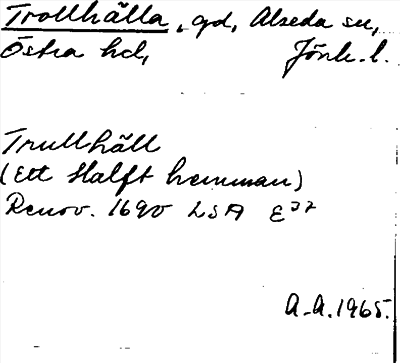 Trollhälla, gd, Alseda sn,
Östra hd, Jönk. l.
Trullhäll
(Ett Halft hemman)
Renov. 1690 LSA E37
A.A. 1965.